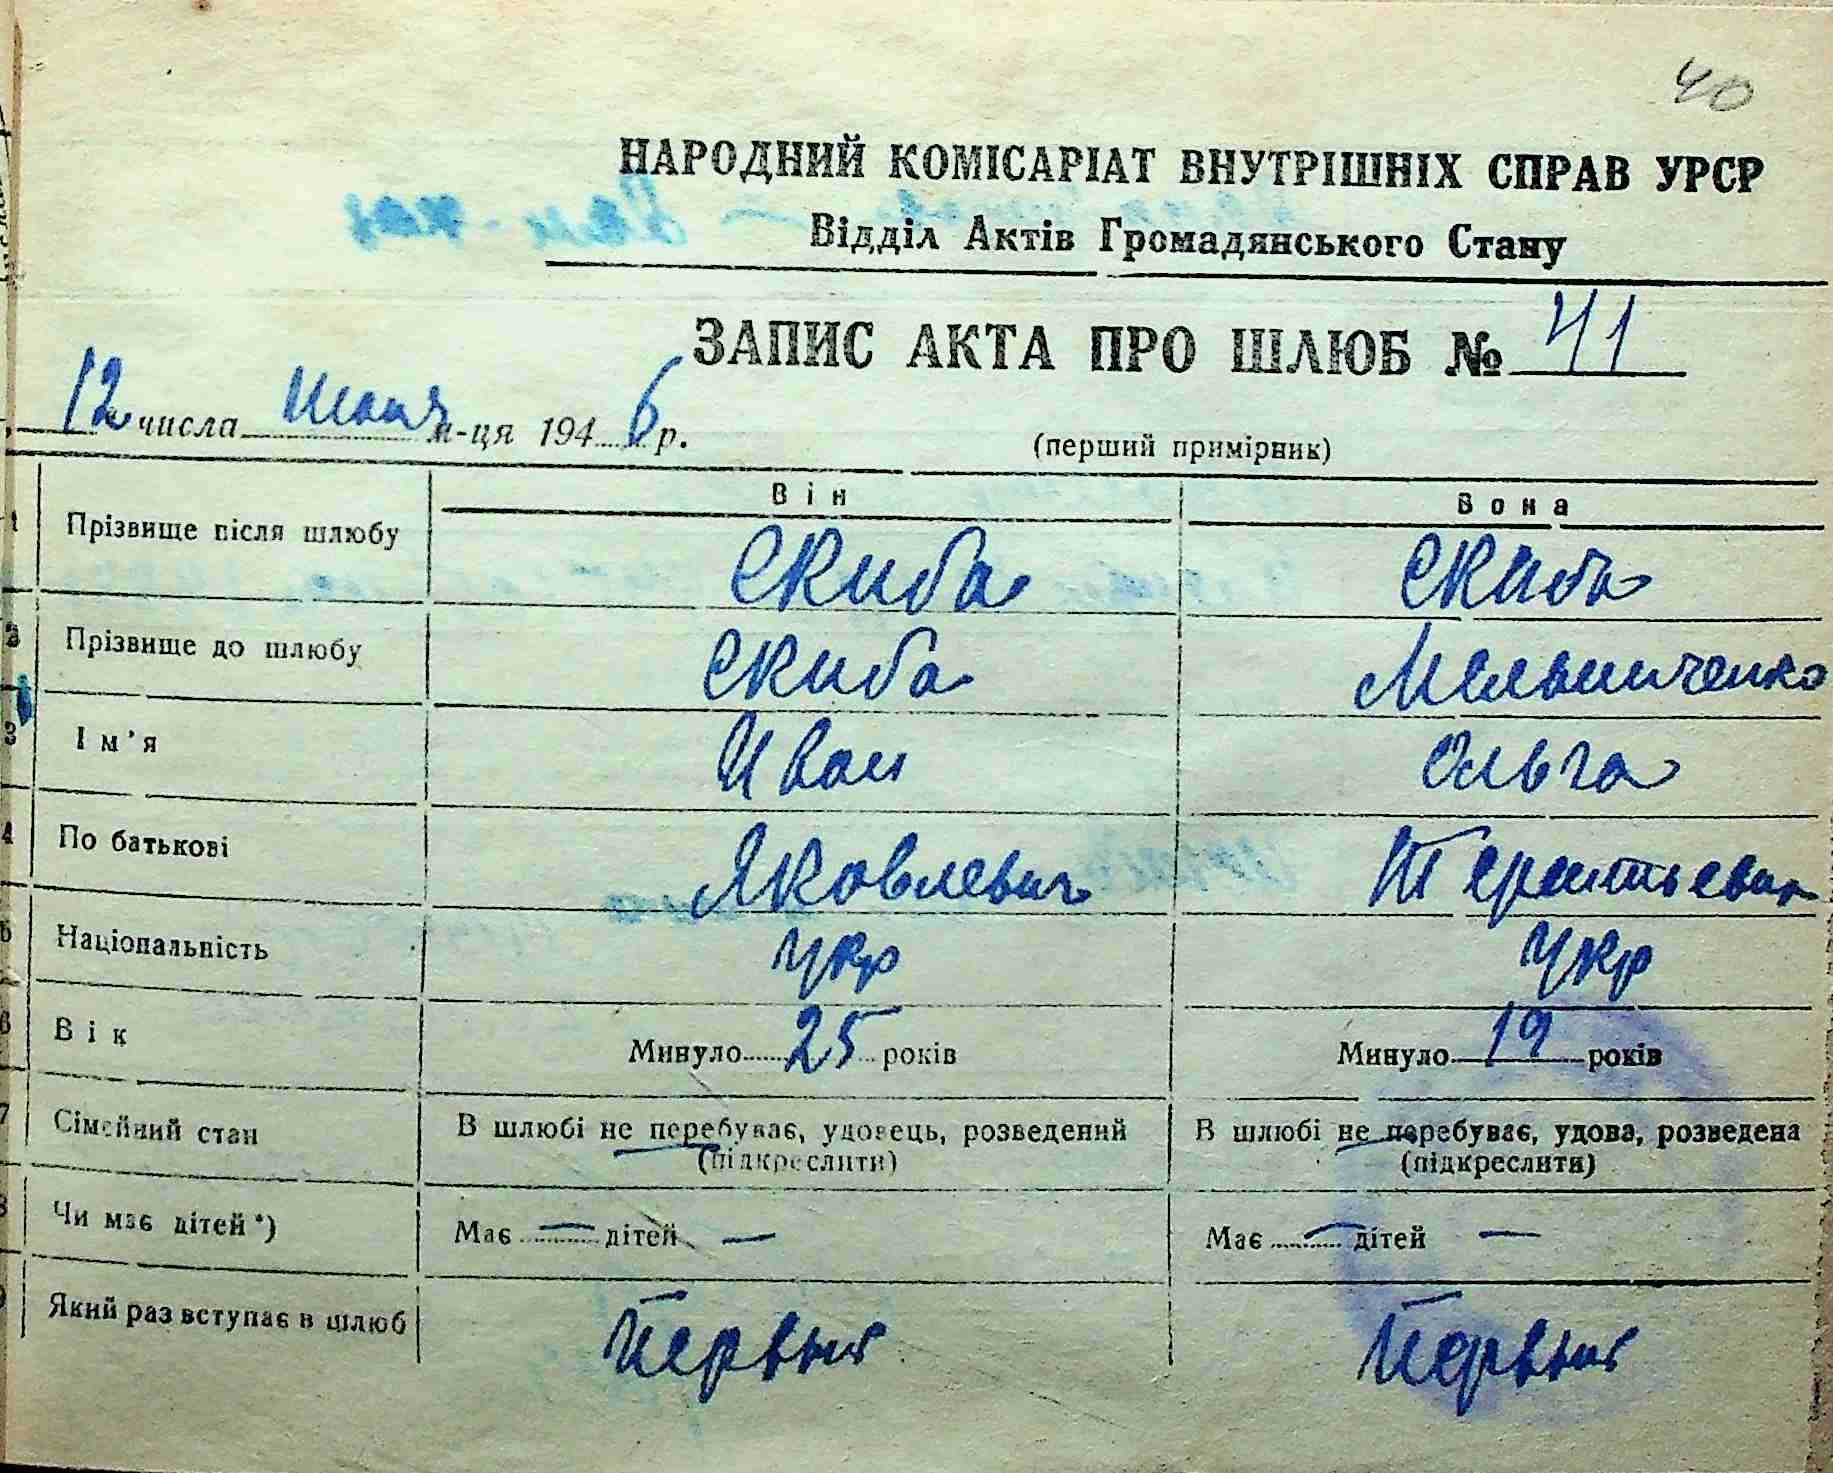 40
НАРОДНИЙ КОМІСАРІАТ ВНУТРІШНІХ СПРАВ УРСР
Відділ Актів Громадянського Стану
ЗАПИС АКТА ПРО ШЛЮБ № 41
12 числа м-ця 1946 р.
(перший примірник)
Він Вона
1 Прізвище після шлюбу Скиба Скиба
2 Прізвище до шлюбу Скиба Мельниченко
3 Ім'я Иван Ольга
4 По батькові Яковлевич Терентьевна
5 Національність укр укр
6 Вік Минуло 25 років Минуло 19 років
7 Сімейний стан В шлюбі не перебуває, удовець, розведений В шлюбі не перебуває, удова, розведена
(підкреслити) (підкреслити)
8 Чи має дітей *) Має — дітей — Має — дітей —
9 Який раз вступає в шлюб Первый Первый